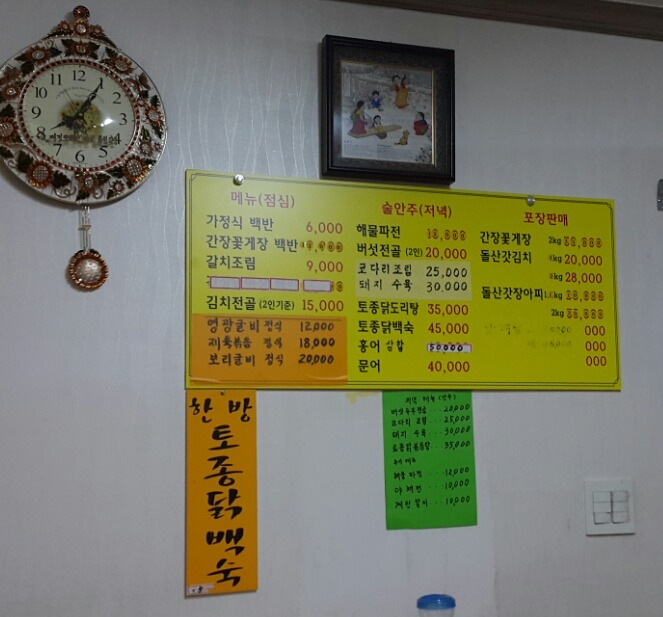 메뉴(점심)
가정식 백반 6,000
간장꽃게장 백반
갈치조림 9,000
김치전골 (2인기준) 15,000
영광굴비 정식 12,000
제육볶음 정식 18,000
보리굴비 정식 20,000
술안주(저녁)
해물파전
버섯전골 (2인) 20,000
코다리조림 25,000
돼지 수육 30,000
토종닭도리탕 35,000
토종닭백숙 45,000
홍어 삼합 50,000
문어 40,000
포장판매
간장꽃게장 2kg
돌산갓김치 kg 20,000
kg 28,000
돌산갓장아찌
2kg
000
000
000
한방
토종닭백숙
20,000
코다리 조림 25,000
돼지 수육 30,000
35,000
12,000
야채전 10,000
계란말이 10,000
12
1
2
3
4
5
6
7
8
9
10
11